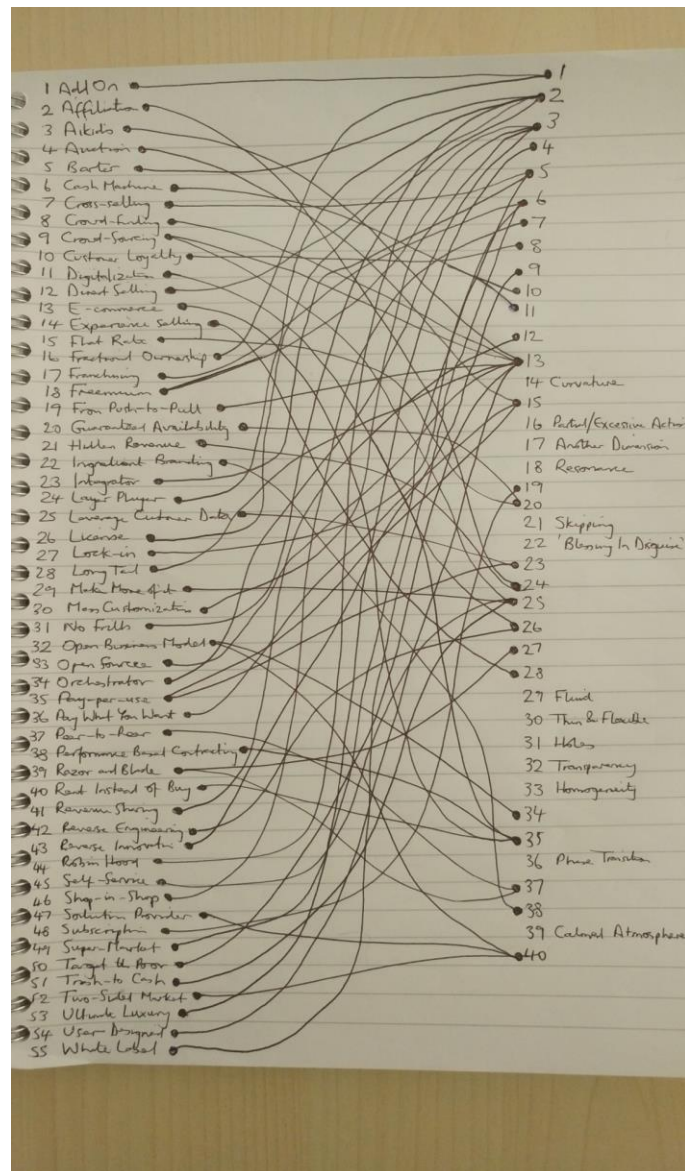 1 Add On
2 Affiliation
3 Aikido
4 Auction
5 Barter
6 Cash Machine
7 Cross-selling
8 Crowd-funding
9 Crowd-Sourcing
10 Customer Loyalty
11 Digitalization
12 Direct Selling
13 E-commerce
14 Experience Selling
15 Flat Rate
16 Fractional Ownership
17 Franchising
18 Freemium
19 From Push-to-Pull
20 Guaranteed Availability
21 Hidden Revenue
22 Ingredient Branding
23 Integrator
24 Layer Player
25 Leverage Customer Data
26 License
27 Lock-in
28 Long Tail
29 Make More of it
30 Mass Customization
31 No Frills
32 Open Business Model
33 Open Source
34 Orchestrator
35 Pay-per-use
36 Pay What You Want
37 Peer-to-Peer
38 Performance Based Contracting
39 Razor and Blade
40 Rent Instead of Buy
41 Revenue Sharing
42 Reverse Engineering
43 Reverse Innovation
44 Robin Hood
45 Self-Service
46 Shop-in-Shop
47 Solution Provider
48 Subscription
49 Super Market
50 Target the Poor
51 Trash-to Cash
52 Two-Sided Market
53 Ultimate Luxury
54 User Designed
55 White Label
1
2
3
4
5
6
7
8
9
10
11
12
13
14 Curvature
15
16 Partial/Excessive Action
17 Another Dimension
18 Resonance
19
20
21 Skipping
22 'Blessing In Disguise'
23
24
25
26
27
28
29 Fluid
30 Thin & Flexible
31 Holes
32 Transparency
33 Homogeneity
34
35
36 Phase Transition
37
38
39 Calmed Atmosphere
40